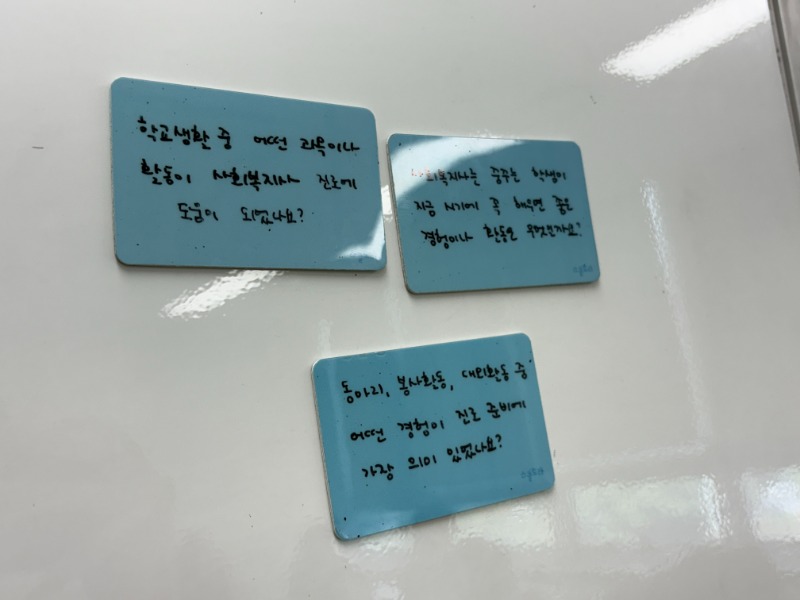 학교생활 중 어떤 과목이나
활동이 사회복지사 진로에
도움이 되었나요?
사회복지사를 꿈꾸는 학생이
지금 시기에 꼭 해두면 좋은
경험이나 활동은 무엇인가요?
동아리, 봉사활동, 대외활동 중
어떤 경험이 진로 준비에
가장 의미 있었나요?